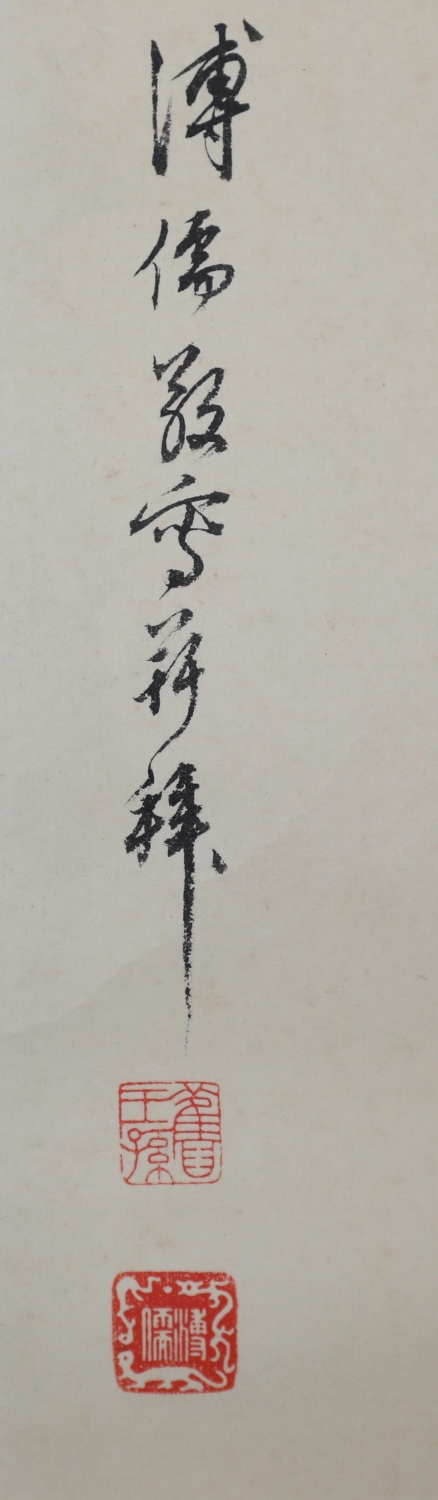 溥儒敬寫并拜
舊王孫
溥儒